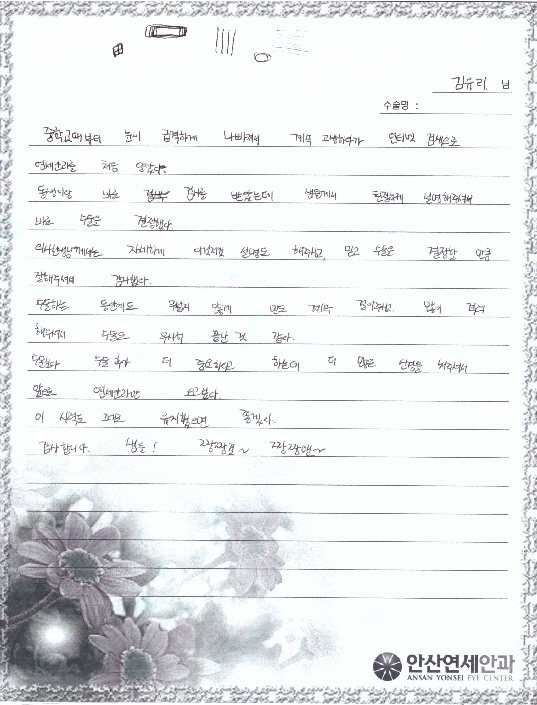 김유리 님
수술명 :
중학교때부터 눈이 급격하게 나빠져서 계속 고생하다가 인터넷 검색으로
연세안과를 처음 알았다.
동생이랑 바로 검사를 받았는데 샘들께서 친절하게 설명해주셔서
바로 수술은 결정했다.
의사선생님께서는 자세하게 이것저것 설명도 해주시고, 믿고 수술은 결정할 만큼
잘해주셔서 감사했다.
수술하는 동안에도 무섭지 않게 말도 계속 걸어주시고, 많이 격려
해주셔서 수술도 무사히 끝난 것 같다.
수술보다 수술 후가 더 중요하다고 하는데 더 많은 신경을 써주셔서
앞으로 연세안과만 오고싶다.
이 시력도 그대로 유지했으면 좋겠다.
감사합니다. 샘들! 짱짱걸~ 짱짱맨~
안산연세안과
ANSAN YONSEI EYE CENTER